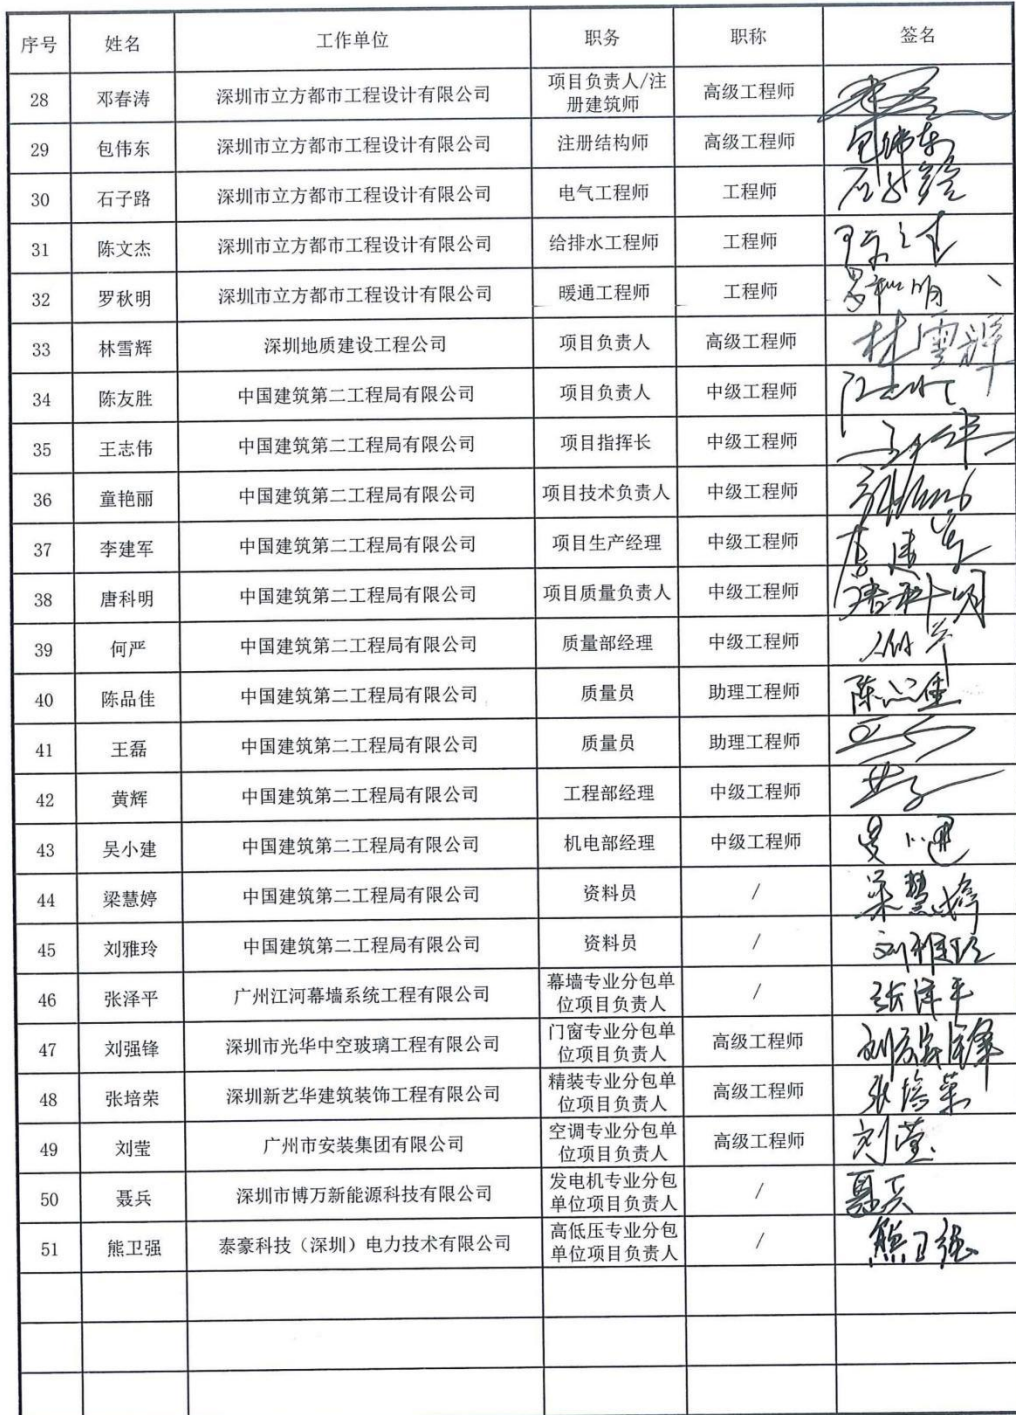 序号 姓名 工作单位 职务 职称 签名
28 邓春涛 深圳市立方都市工程设计有限公司 项目负责人/注册建筑师 高级工程师
29 包伟东 深圳市立方都市工程设计有限公司 注册结构师 高级工程师 包伟东
30 石子路 深圳市立方都市工程设计有限公司 电气工程师 工程师 石子路
31 陈文杰 深圳市立方都市工程设计有限公司 给排水工程师 工程师
32 罗秋明 深圳市立方都市工程设计有限公司 暖通工程师 工程师 罗秋明
33 林雪辉 深圳地质建设工程公司 项目负责人 高级工程师
34 陈友胜 中国建筑第二工程局有限公司 项目负责人 中级工程师
35 王志伟 中国建筑第二工程局有限公司 项目指挥长 中级工程师
36 童艳丽 中国建筑第二工程局有限公司 项目技术负责人 中级工程师
37 李建军 中国建筑第二工程局有限公司 项目生产经理 中级工程师 李建军
38 唐科明 中国建筑第二工程局有限公司 项目质量负责人 中级工程师 唐科明
39 何严 中国建筑第二工程局有限公司 质量部经理 中级工程师
40 陈品佳 中国建筑第二工程局有限公司 质量员 助理工程师 陈品佳
41 王磊 中国建筑第二工程局有限公司 质量员 助理工程师
42 黄辉 中国建筑第二工程局有限公司 工程部经理 中级工程师
43 吴小建 中国建筑第二工程局有限公司 机电部经理 中级工程师 吴小建
44 梁慧婷 中国建筑第二工程局有限公司 资料员 / 梁慧婷
45 刘雅玲 中国建筑第二工程局有限公司 资料员 / 刘雅玲
46 张泽平 广州江河幕墙系统工程有限公司 幕墙专业分包单位项目负责人 / 张泽平
47 刘强锋 深圳市光华中空玻璃工程有限公司 门窗专业分包单位项目负责人 高级工程师 刘强锋
48 张培荣 深圳新艺华建筑装饰工程有限公司 精装专业分包单位项目负责人 高级工程师 张培荣
49 刘莹 广州市安装集团有限公司 空调专业分包单位项目负责人 高级工程师 刘莹
50 聂兵 深圳市博万新能源科技有限公司 发电机专业分包单位项目负责人 / 聂兵
51 熊卫强 泰豪科技（深圳）电力技术有限公司 高低压专业分包单位项目负责人 / 熊卫强